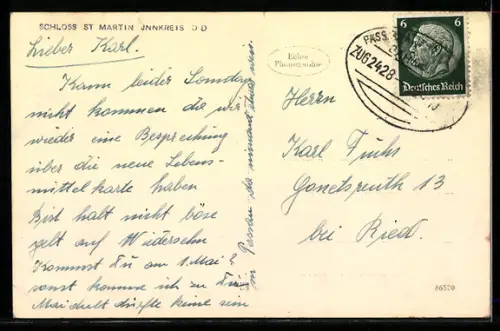 SCHLOSS ST MARTIN JNNKREIS O D
Lieber Karl.
Kann leider Sonntag
nicht kommen da wir
wieder eine Besprechung
über die neue Lebens-
mittelkarte haben
Bist halt nicht böse
gelt auf Wiedersehn
Kommst Du am 1. Mai?
sonst komme ich zu Dir
Maidult dürfte keine sein
in Passau da niemand
Echte
Photographie
PASS
ZUG 2428
6 6
Deutsches Reich
Herrn
Karl Fuchs
13
bei Ried.
86520